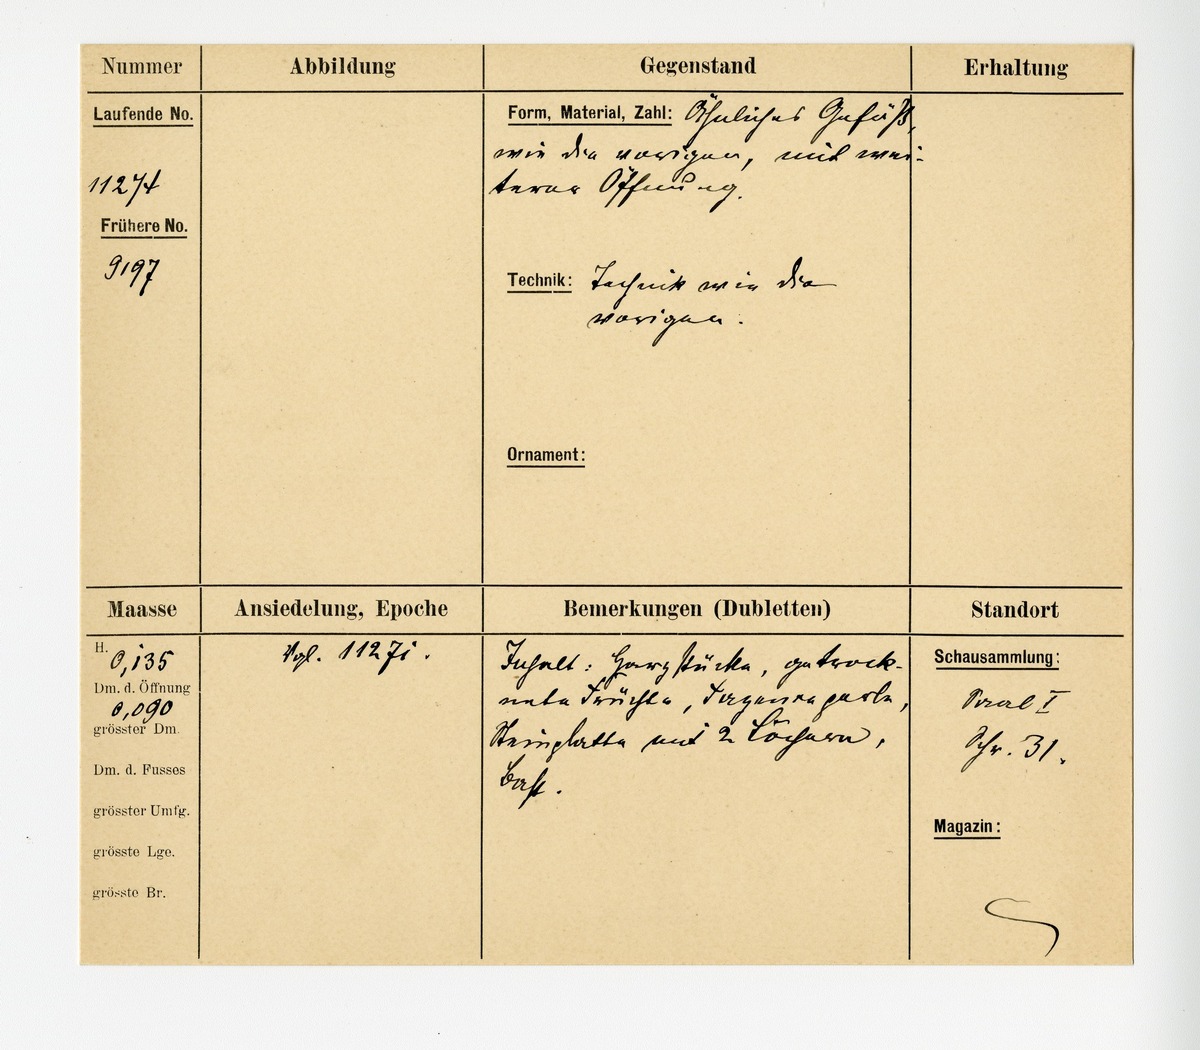 Nummer
Abbildung
Gegenstand
Erhaltung
Laufende No.
11274
Frühere No.
9197
Form, Material, Zahl: Ähnliches Gefäß,
wie die vorigen, mit wei-
terer Öffnung.
Technik: Technik wie die
vorigen.
Ornament:
Maasse
Ansiedelung, Epoche
Bemerkungen (Dubletten)
Standort
H. 0,135
Dm. d. Öffnung
0,090
grösster Dm.
Dm. d. Fusses
grösster Umfg.
grösste Lge.
grösste Br.
Vgl. 11271.
Inhalt: Harzstücke, getrock-
nete Früchte,
Steinplatte mit 2 Löchern,
Bast.
Schausammlung:
Saal I
Schr. 31.
Magazin: